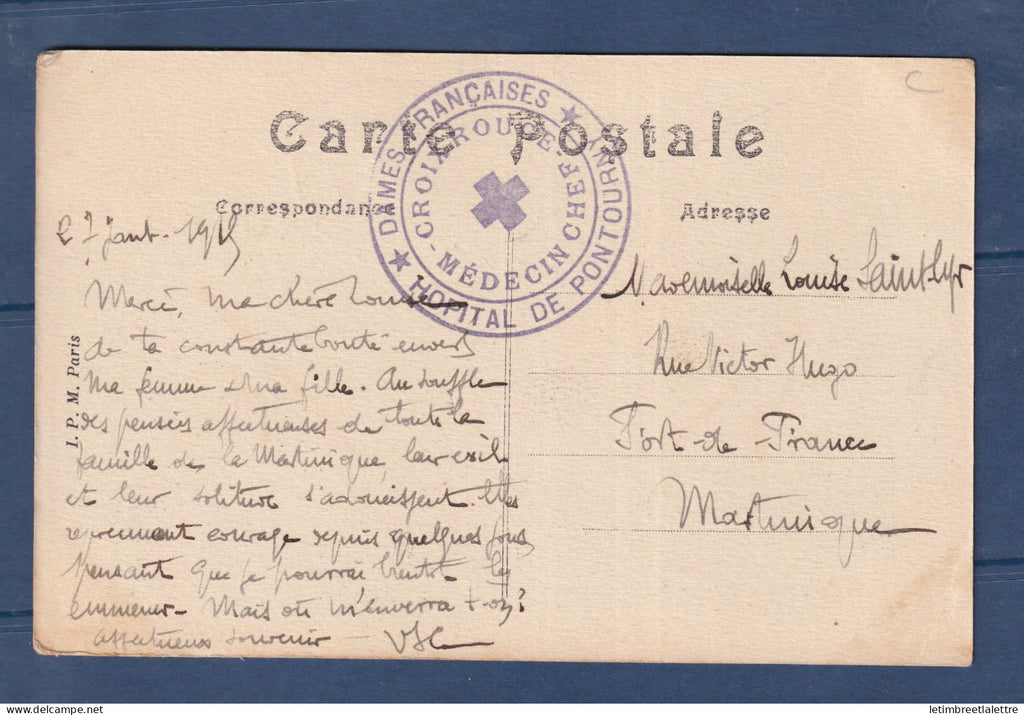 Carte Postale
Correspondance
Adresse
DAMES FRANÇAISES ★ HOPITAL DE PONTOURNY ★
CROIX ROUGE - MÉDECIN CHEF -
C
27 janv. 1915
Merci, ma chère Louise
de ta constante bonté envers
ma femme & ma fille. Au souffle
des pensées affectueuses de toute la
famille de la Martinique, leur exil
et leur solitude s'adoucissent. Elles
reprennent courage depuis quelques jours
pensant que je pourrai bientôt les
emmener - Mais où m'enverra-t-on?
affectueux souvenir -
Mademoiselle Louise Saint-Cyr
Rue Victor Hugo
Fort-de-France
Martinique
I. P. M. Paris
letimbreetlalettre